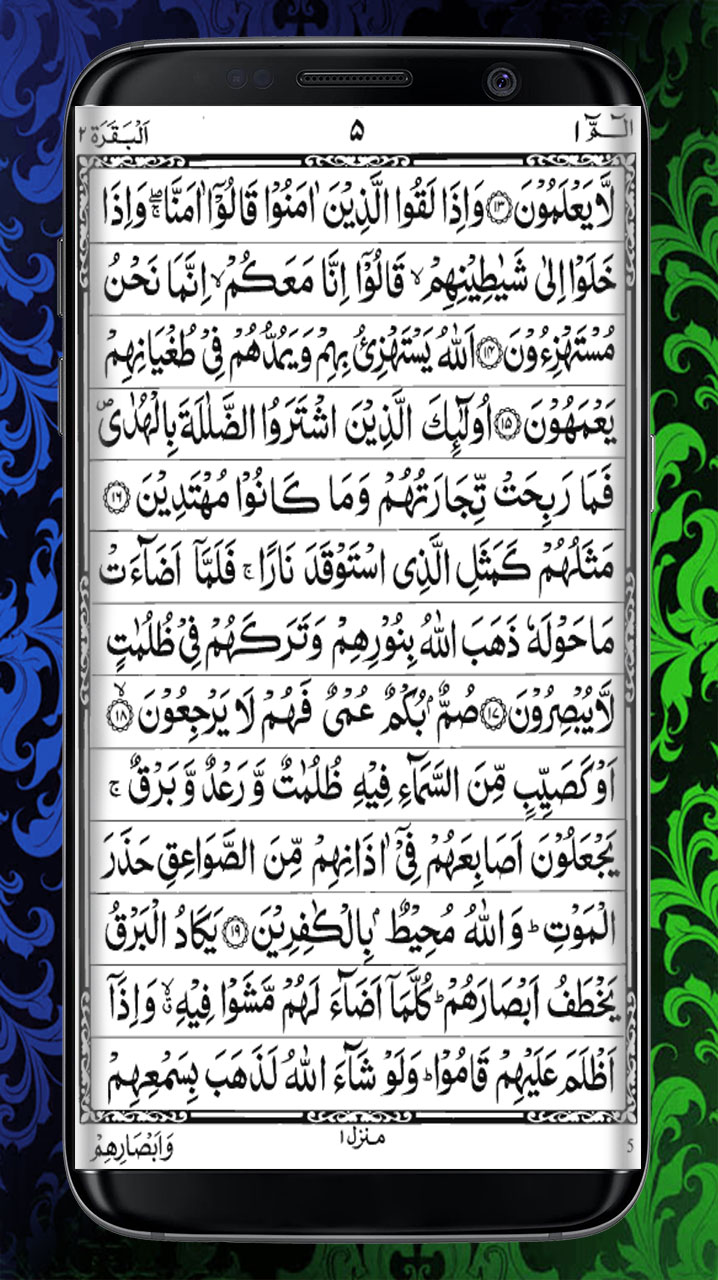 الٓمّٓ ١ ۵ اَلْبَقَرَة ٢
لَّا يَعْلَمُوْنَ ﴿۱۳﴾ وَاِذَا لَقُوا الَّذِيْنَ اٰمَنُوْا قَالُوْۤا اٰمَنَّا ۖۚ وَاِذَا
خَلَوْا اِلٰى شَيٰطِيْنِهِمْ ۙ قَالُوْۤا اِنَّا مَعَكُمْ ۙ اِنَّمَا نَحْنُ
مُسْتَهْزِءُوْنَ ﴿۱۴﴾ اَللّٰهُ يَسْتَهْزِئُ بِهِمْ وَيَمُدُّهُمْ فِىْ طُغْيَانِهِمْ
يَعْمَهُوْنَ ﴿۱۵﴾ اُولٰٓئِكَ الَّذِيْنَ اشْتَرَوُا الضَّلٰلَةَ بِالْهُدٰى ص
فَمَا رَبِحَتْ تِّجَارَتُهُمْ وَمَا كَانُوْا مُهْتَدِيْنَ ﴿۱۶﴾
مَثَلُهُمْ كَمَثَلِ الَّذِى اسْتَوْقَدَ نَارًا ۚ فَلَمَّاۤ اَضَآءَتْ
مَا حَوْلَهٗ ذَهَبَ اللّٰهُ بِنُوْرِهِمْ وَتَرَكَهُمْ فِىْ ظُلُمٰتٍ
لَّا يُبْصِرُوْنَ ﴿۱۷﴾ صُمٌّۢ بُكْمٌ عُمْىٌ فَهُمْ لَا يَرْجِعُوْنَ ۙ﴿۱۸﴾
اَوْ كَصَيِّبٍ مِّنَ السَّمَآءِ فِيْهِ ظُلُمٰتٌ وَّرَعْدٌ وَّبَرْقٌ ۚ
يَجْعَلُوْنَ اَصَابِعَهُمْ فِىْۤ اٰذَانِهِمْ مِّنَ الصَّوَاعِقِ حَذَرَ
الْمَوْتِ ؕ وَاللّٰهُ مُحِيْطٌۢ بِالْكٰفِرِيْنَ ﴿۱۹﴾ يَكَادُ الْبَرْقُ
يَخْطَفُ اَبْصَارَهُمْ ؕ كُلَّمَاۤ اَضَآءَ لَهُمْ مَّشَوْا فِيْهِ ۙۗ وَاِذَاۤ
اَظْلَمَ عَلَيْهِمْ قَامُوْا ؕ وَلَوْ شَآءَ اللّٰهُ لَذَهَبَ بِسَمْعِهِمْ
5 منزل ١ وَاَبْصَارِهِمْ